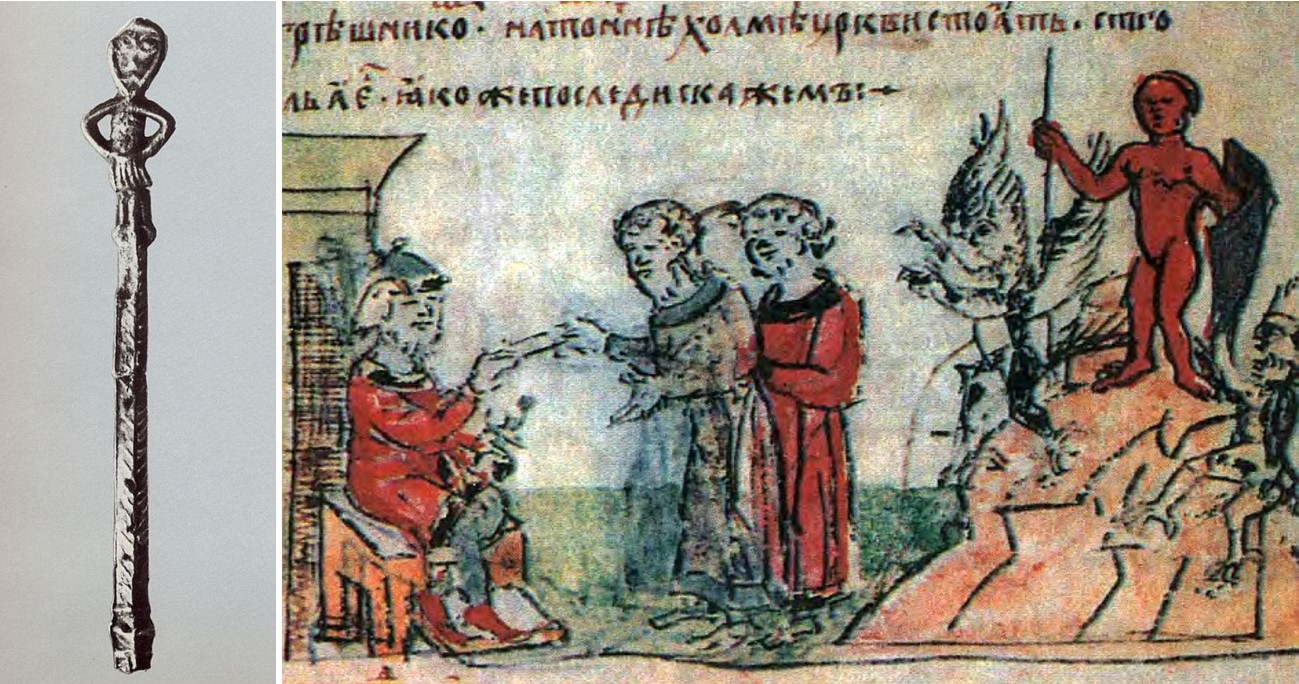 рѣшнико · натомнѣ холмѣ црквистоѧть · стго
льѧ є · ꙗкожепоследискажемъ :~